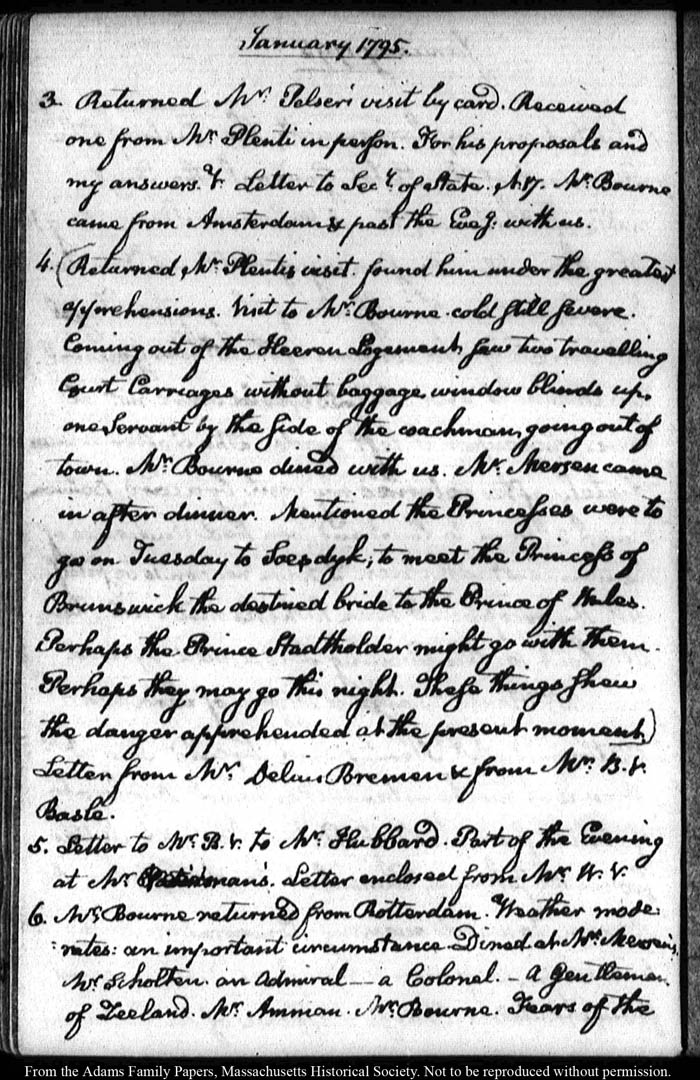 January 1795.
3. Returned Mr. Pelser's visit by card. Received
one from Mr. Plenti in person. For his proposals and
my answers. V. Letter to Secy. of State. N. 17. Mr. Bourne
came from Amsterdam & past the Eveg: with us.
4. (Returned Mr. Plentis visit. found him under the greatest
apprehensions. Visit to Mr. Bourne. cold still severe.
Coming out of the Heeren Logement, saw two travelling
Court Carriages without baggage, window blinds up,
one Servant by the side of the coachman, going out of
town. Mr. Bourne dined with us. Mr. Mersen came
in after dinner. Mentioned the Princesses were to
go on Tuesday to Soesdyk, to meet the Princess of
Brunswick the destined bride to the Prince of Wales.
Perhaps the Prince Stadtholder might go with them.
Perhaps they may go this night. These things shew
the danger apprehended at the present moment)
Letter from Mr. Delius Bremen & from Mr. B. V.
Basle.
5. Letter to Mr. B. V. to Mr. Hubbard. Part of the Evening
at Mr. Letter enclosed from Mr. W. V.
6. Mr. Bourne returned from Rotterdam. Weather mode-
:rates: an important circumstance. Dined at Mr.
Mr. Scholten. an Admiral — a Colonel. — A Gentleman
of Zeeland. Mr. Amman. Mr. Bourne. Fears of the
From the Adams Family Papers, Massachusetts Historical Society. Not to be reproduced without permission.